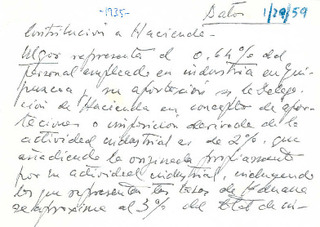 -1935- Datos 1/29/59
Contribución a Hacienda.-
Ulgor representa el 0.64% del
personal empleado en industria en Gui-
púzcoa y su aportación en la Delega-
ción de Hacienda en concepto de apor-
taciones o imposición derivada de la
actividad industrial es de 2%, que
añadiendo la originada propiamente
por su actividad industrial, incluyendo
los que representan las tasas de Aduana
se aproxima al 3% del total de in-